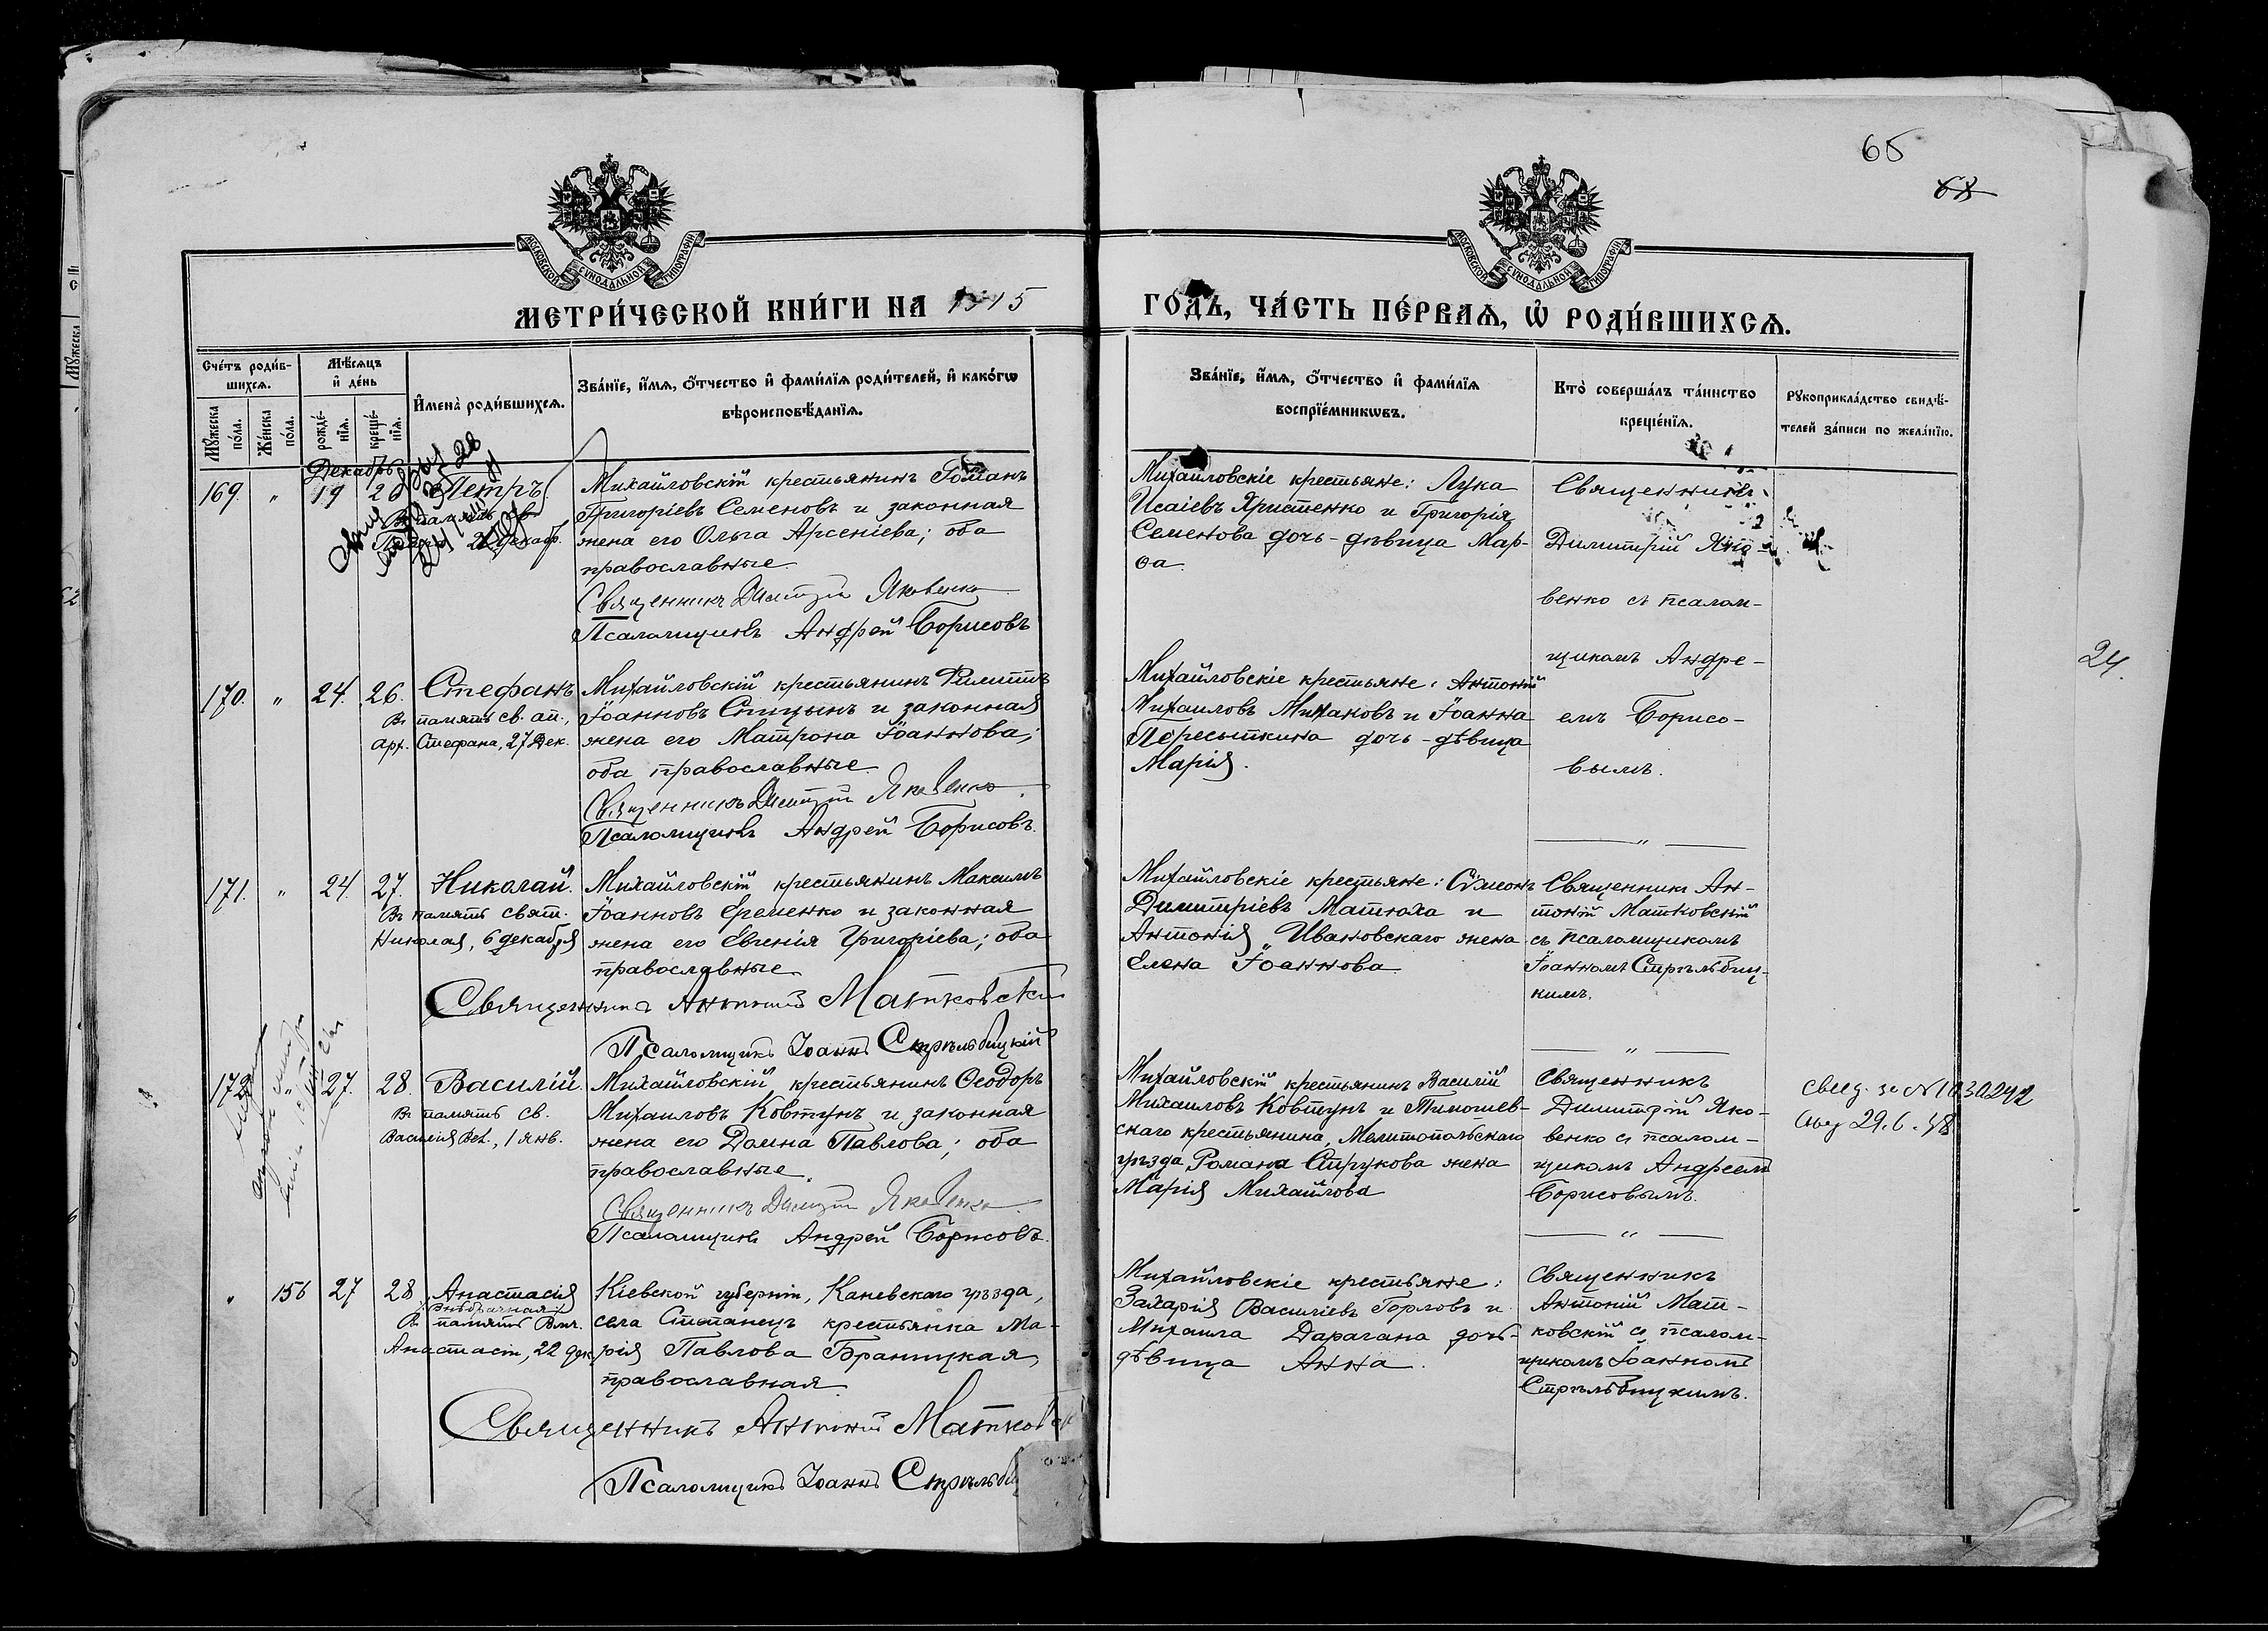 65
68
МОСКОВСКОЙ СУНОДАЛЬНОЙ ТИПОГРАФІИ
МОСКОВСКОЙ СУНОДАЛЬНОЙ ТИПОГРАФІИ
МЕТРИ́ЧЕСКОЙ КНИ́ГИ НА 1915
ГО́ДЪ, ЧА́СТЬ ПЕ́РВАѦ, Ѡ҆ РОДИ́ВШИХСѦ.
Сче́тъ роди́в-
шихсѧ.
Мѣ́сѧцъ
и҆ де́нь
И҆мена̀ роди́вшихсѧ.
Зва́нїе, и҆́мѧ, ѻ҆́тчество и҆ фами́лїѧ роди́телей, и҆ како́гѡ
вѣроисповѣ́данїѧ.
Мꙋ́жеска
по́ла.
Же́нска
по́ла.
рожде́-
нїѧ.
креще́-
нїѧ.
Зва́нїе, и҆́мѧ, ѻ҆́тчество и҆ фами́лїѧ
воспрїе́мникѡвъ.
Кто̀ соверша́лъ та́инство
креще́нїѧ.
Рꙋкоприкла́дство свидѣ́-
телей за́писи по жела́нїю.
Декабрь
169. " 19 20 Петръ
Въ память св.
Петра 21 декаб.
Михайловскій крестьянинъ Романъ
Григоріевъ Семеновъ и законная
жена его Ольга Арсеніева; оба
православные.
Священникъ Димитрій Яковенко
Псаломщикъ Андрей Борисовъ
Михайловскіе крестьяне: Лука
Исаіевъ Христенко и Григорія
Семенова дочь-дѣвица Мар-
ѳа.
Священникъ
Димитрій Яко-
венко съ псалом-
щикомъ Андре-
емъ Борисо-
вымъ.
24.
170. " 24. 26. Стефанъ
Въ память св. ап.,
арх. Стефана, 27 Дек.
Михайловскій крестьянинъ Филиппъ
Іоанновъ Спицынъ и законная
жена его Матрона Іоаннова;
оба православные.
Священникъ Димитрій Яковенко.
Псаломщикъ Андрей Борисовъ.
Михайловскіе крестьяне: Антоній
Михаиловъ Михановъ и Іоанна
Пересыпкина дочь-дѣвица
Марія.
171. " 24. 27. Николай.
Въ память свят.
Николая, 6 декабря
Михайловскій крестьянинъ Максимъ
Іоанновъ Еременко и законная
жена его Евгенія Григоріева; оба
православные.
Священникъ Антоній Матковскій
Псаломщикъ Іоаннъ Стрѣльбицкій
Михайловскіе крестьяне: Симеонъ
Димитріевъ Матюха и
Антонія Ивановскаго жена
Елена Іоаннова
Священникъ Ан-
тоній Матковскій
съ псаломщикомъ
Іоанномъ Стрѣльбиц-
кимъ.
172. " 27. 28. Василій.
Въ память св.
Василія Вел., 1 янв.
Михайловскій крестьянинъ Ѳеодоръ
Михаиловъ Ковтунъ и законная
жена его Домна Павлова; оба
православные.
Священникъ Димитрій Яковенко.
Псаломщикъ Андрей Борисовъ.
Михайловскій крестьянинъ Василій
Михаиловъ Ковтунъ и Тимошев-
скаго крестьянина, Мелитопольскаго
уѣзда, Романа Струкова жена
Марія Михайлова
Священникъ
Димитрій Яко-
венко съ псалом-
щикомъ Андреемъ
Борисовымъ.
29.6.48
" 156 27 28 Анастасія
/Внѣбрачная/
Въ память Вмч.
Анастасіи, 22 дек.
Кіевской губерніи, Каневскаго уѣзда,
села Степанецъ крестьянка Ма-
рія Павлова Браницкая,
православная.
Священникъ Антоній Матков
Псаломщикъ Іоаннъ Стрѣльби
Михайловскіе крестьяне:
Захарія Василіевъ Горловъ и
Михаила Дарагана дочь-
дѣвица Анна.
Священникъ
Антоній Мат-
ковскій съ псалом-
щикомъ Іоанномъ
Стрѣльбицкимъ.